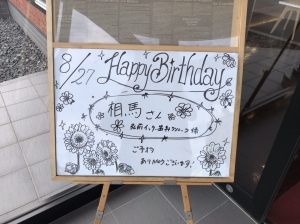 8/27 Happy Birthday
相馬さん
様
ご予約
ありがとうございます!